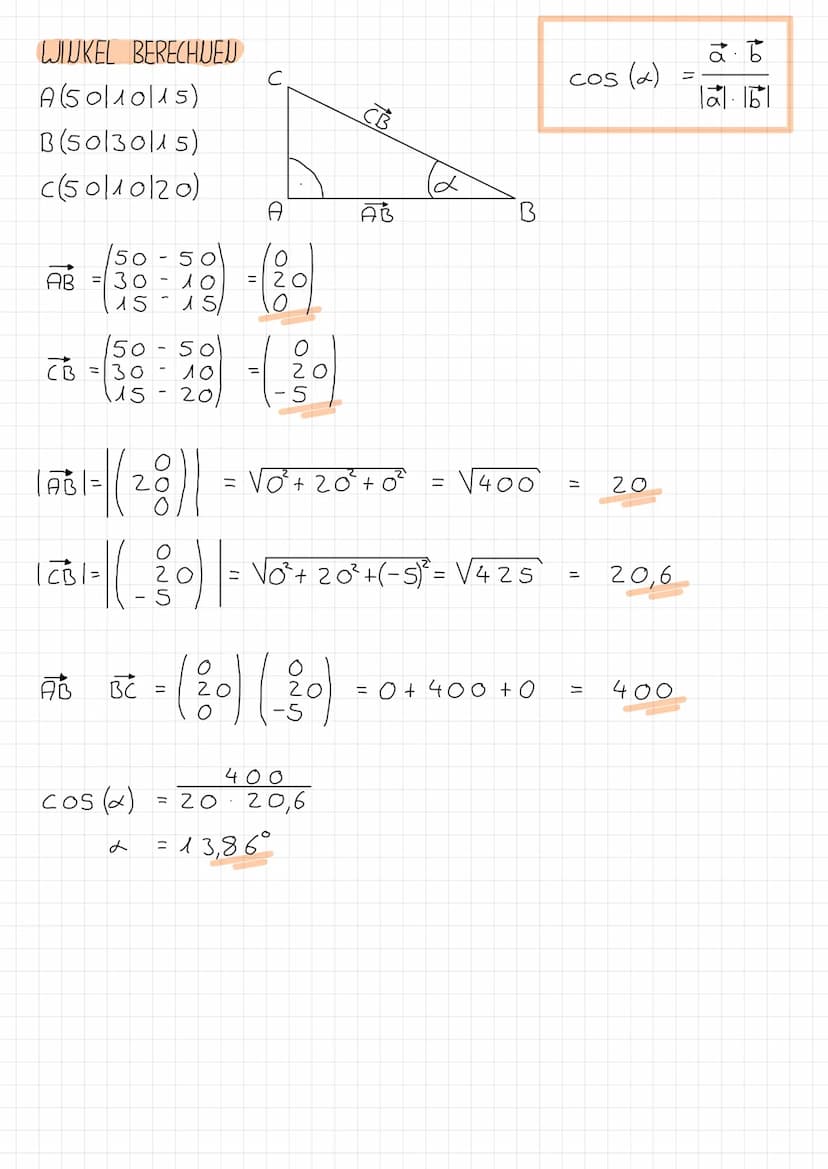 WINKEL BERECHNEN
cos (α) = a⃗ · b⃗ / |a⃗| · |b⃗|
A(50|10|15)
B(50|30|15)
C(50|10|20)
C
CB⃗
α
A
AB⃗
B
AB⃗ = (50 - 50 30 - 10 15 - 15) = (0 20 0)
CB⃗ = (50 - 50 30 - 10 15 - 20) = (0 20 -5)
|AB⃗| = |(0 20 0)| = √0² + 20² + 0² = √400 = 20
|CB⃗| = |(0 20 -5)| = √0² + 20² + (-5)² = √425 = 20,6
AB⃗ BC⃗ = (0 20 0) (0 20 -5) = 0 + 400 + 0 = 400
cos (α) = 400 / 20 · 20,6
α = 13,86°